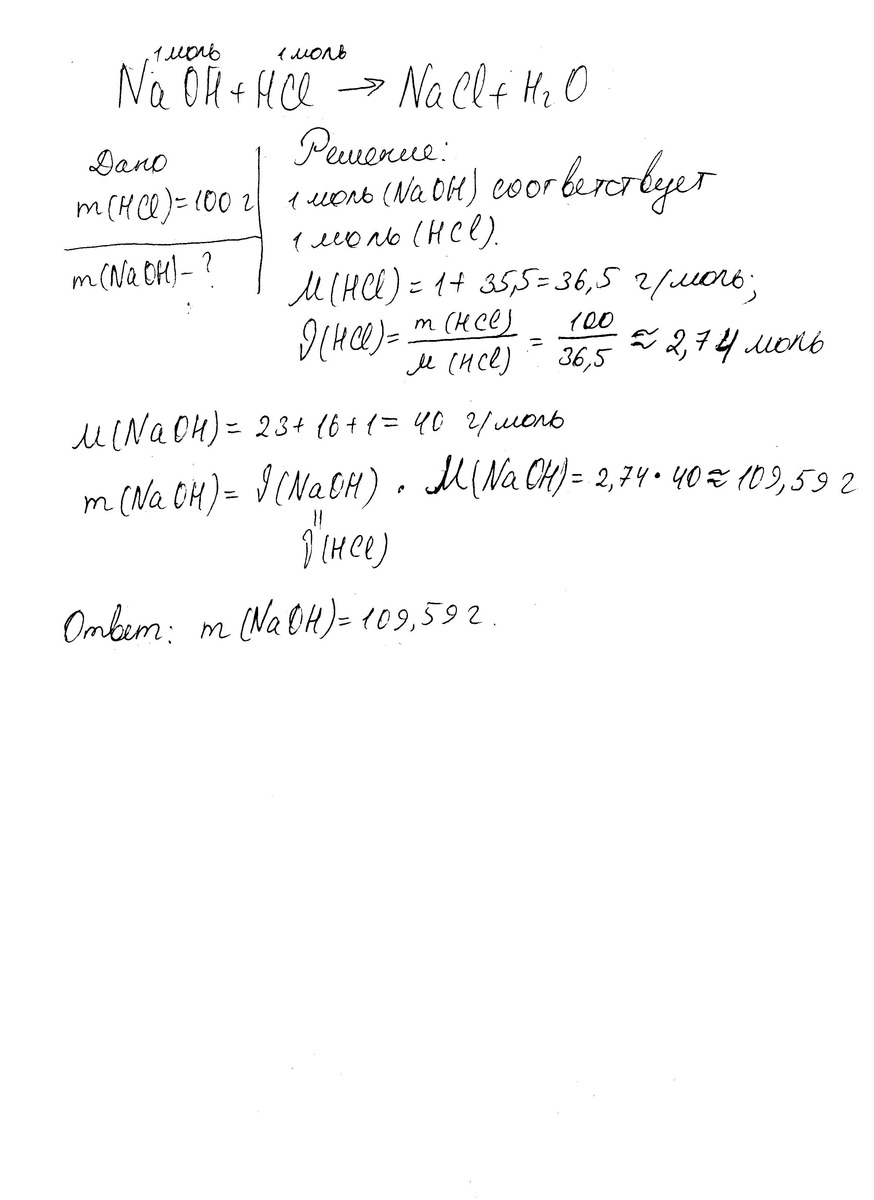 1 моль 1 моль
NaOH + HCl → NaCl + H₂O
Дано
m(HCl) = 100 г
m(NaOH) - ?
Решение:
1 моль (NaOH) соответствует
1 моль (HCl).
M(HCl) = 1 + 35,5 = 36,5 г/моль;
ν(HCl) = m(HCl) / M(HCl) = 100 / 36,5 ≈ 2,74 моль
M(NaOH) = 23 + 16 + 1 = 40 г/моль
m(NaOH) = ν(NaOH) · M(NaOH) = 2,74 · 40 ≈ 109,59 г
||
ν(HCl)
Ответ: m(NaOH) = 109,59 г.